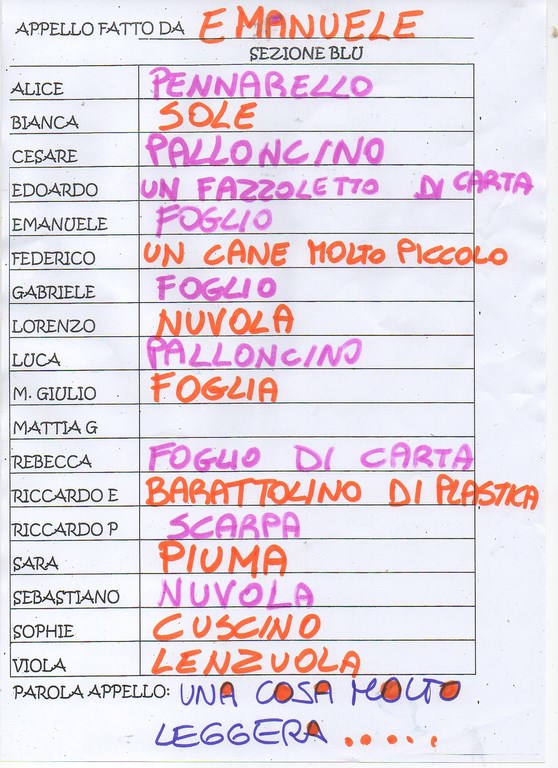 APPELLO FATTO DA EMANUELE
SEZIONE BLU
ALICE PENNARELLO
BIANCA SOLE
CESARE PALLONCINO
EDOARDO UN FAZZOLETTO DI CARTA
EMANUELE FOGLIO
FEDERICO UN CANE MOLTO PICCOLO
GABRIELE FOGLIO
LORENZO NUVOLA
LUCA PALLONCINO
M. GIULIO FOGLIA
MATTIA G
REBECCA FOGLIO DI CARTA
RICCARDO E BARATTOLINO DI PLASTICA
RICCARDO P SCARPA
SARA PIUMA
SEBASTIANO NUVOLA
SOPHIE CUSCINO
VIOLA LENZUOLA
PAROLA APPELLO: UNA COSA MOLTO
LEGGERA .....